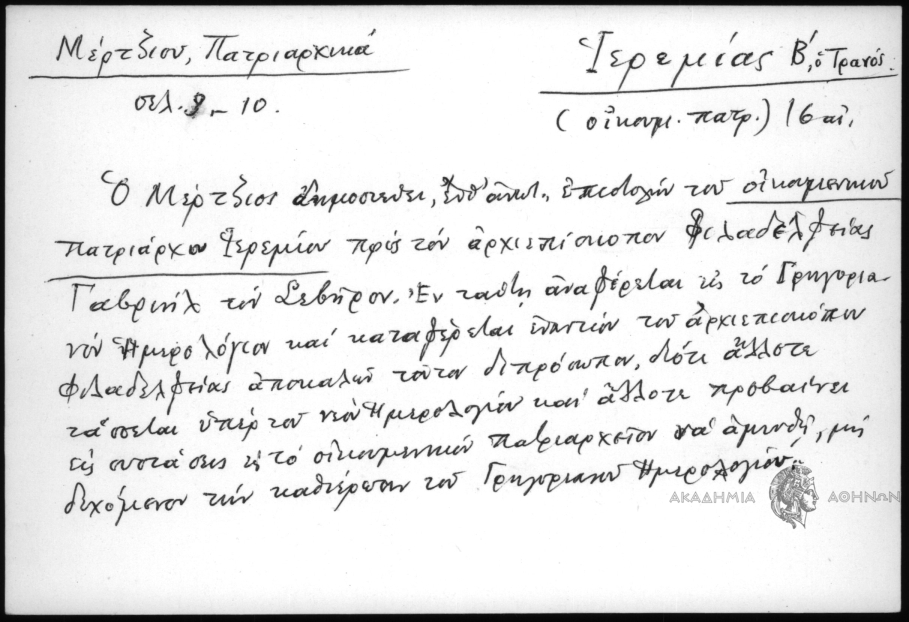 Μέρτζιου, Πατριαρχικά
σελ. 9 - 10.
Ἱερεμίας Β΄, ὁ Τρανός.
(οἰκουμ. πατρ.) 16 αἰ.
Ὁ Μέρτζιος δημοσιεύει, ἐπιστολήν τοῦ οἰκουμενικοῦ
πατριάρχου Ἱερεμίου πρός τόν ἀρχιεπίσκοπον Φιλαδελφείας
Γαβριήλ τόν Σεβῆρον. Ἐν ταύτῃ ἀναφέρεται εἰς τό Γρηγορια-
νόν Ἡμερολόγιον καί καταφέρεται ἐναντίον τοῦ ἀρχιεπισκόπου
Φιλαδελφείας ἀποκαλῶν τοῦτον διπρόσωπον, διότι ἄλλοτε
τάσσεται ὑπέρ τοῦ νέου Ἡμερολογίου καί ἄλλοτε προβαίνει
εἰς συστάσεις εἰς τό οἰκουμενικόν πατριαρχεῖον νά ἀμυνθῇ, μή
δεχόμενον τήν καθιέρωσιν τοῦ Γρηγοριανοῦ Ἡμερολογίου.
ΑΚΑΔΗΜΙΑ ΑΘΗΝΩΝ